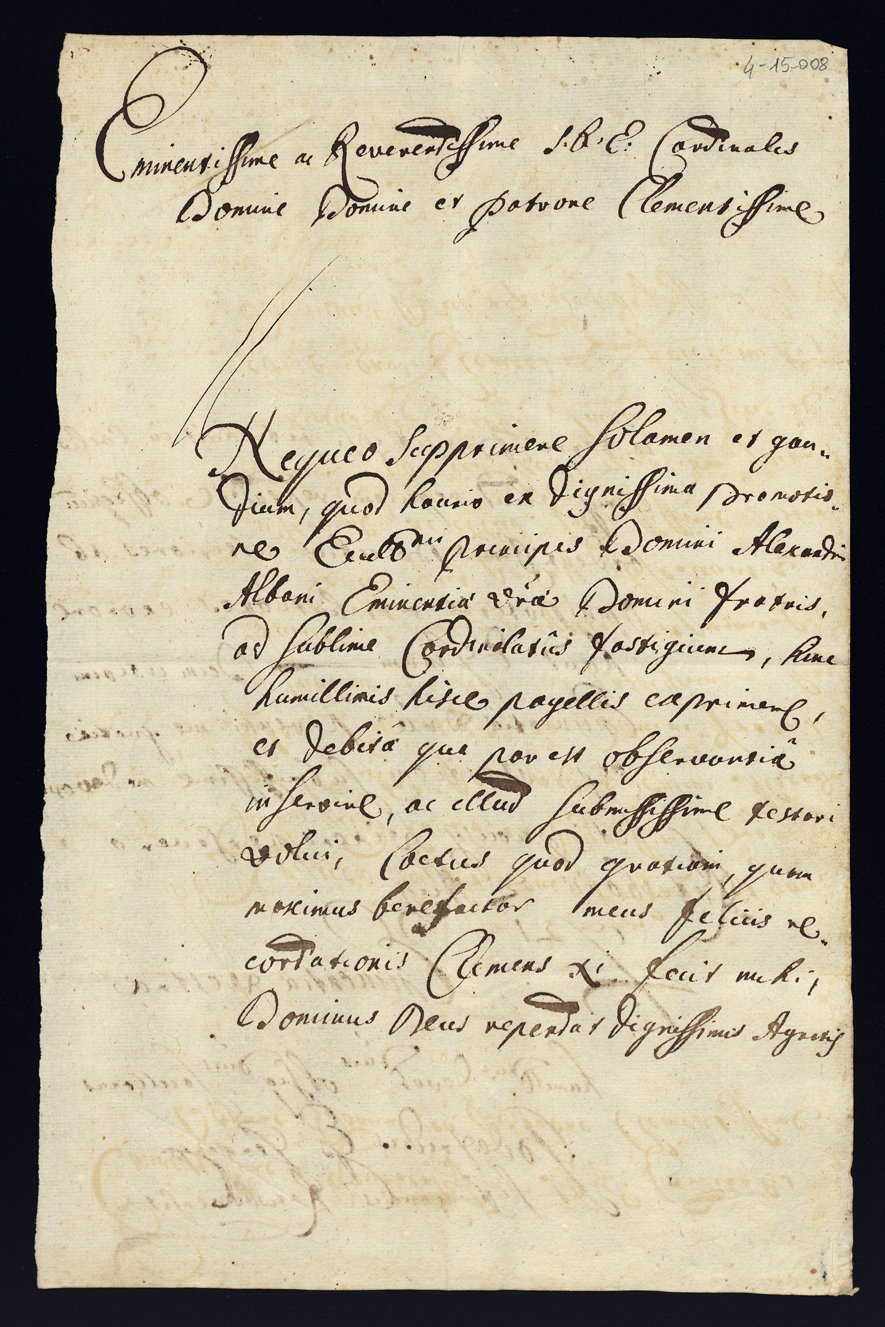 4-15-008
Eminentissime ac Reverendissime S.R.E. Cardinalis
Domine Domine et patrone Clementissime
Nequeo supprimere solamen et gau-
dium, quod haurio ex dignissima promotio-
ne Principis Domini Alexandri
Albani Eminentiæ vræ Domini fratris,
ad sublime Cardinalatûs fastigium, hinc
humillimis hisce pagellis exprimere,
et debitâ qua par est observantiâ
inservire, ac illud submississime testari
volui, Coetus quod gratiam, quam
maximus benefactor meus felicis re-
cordationis Clemens XI fecit mihi,
Dominus Deus rependat dignissimis Agnatis